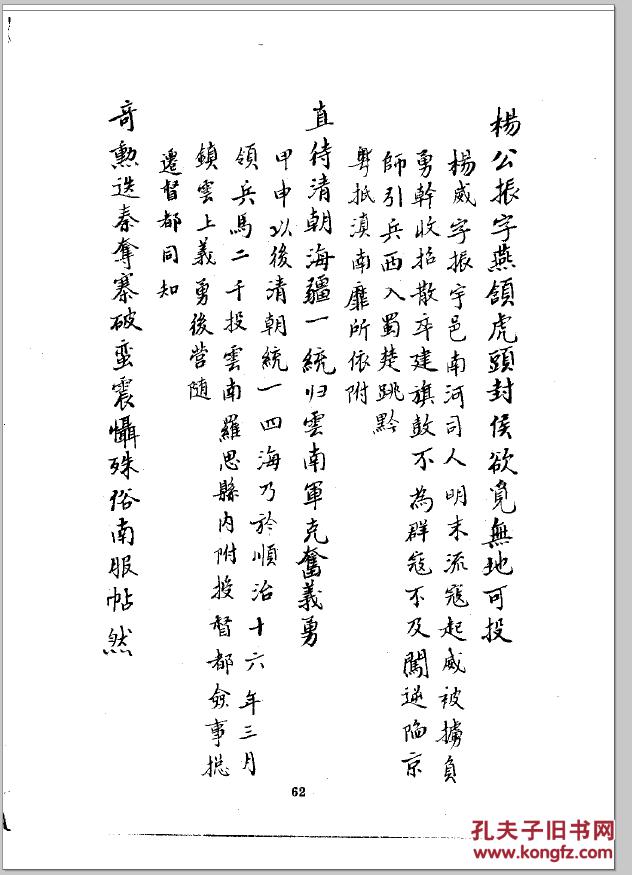 楊公振宇燕頷虎頭封侯欲覓無地可投
楊威字振宇邑南河司人明末流寇起威被擄負
勇幹收招散卒建旗鼓不為群寇不及闖逆陷京
師引兵西入蜀楚跳黔
粵抵滇南靡所依附
直待清朝海疆一統归雲南軍克奮義勇
甲申以後清朝統一四海乃於順治十六年三月
領兵馬二千投雲南羅思縣内附授督都僉事摠
鎮雲上義勇後营随
遷督都同知
奇勲迭奏奪寨破蛮震懾殊俗南服帖然
62
孔夫子旧书网
www.kongfz.com